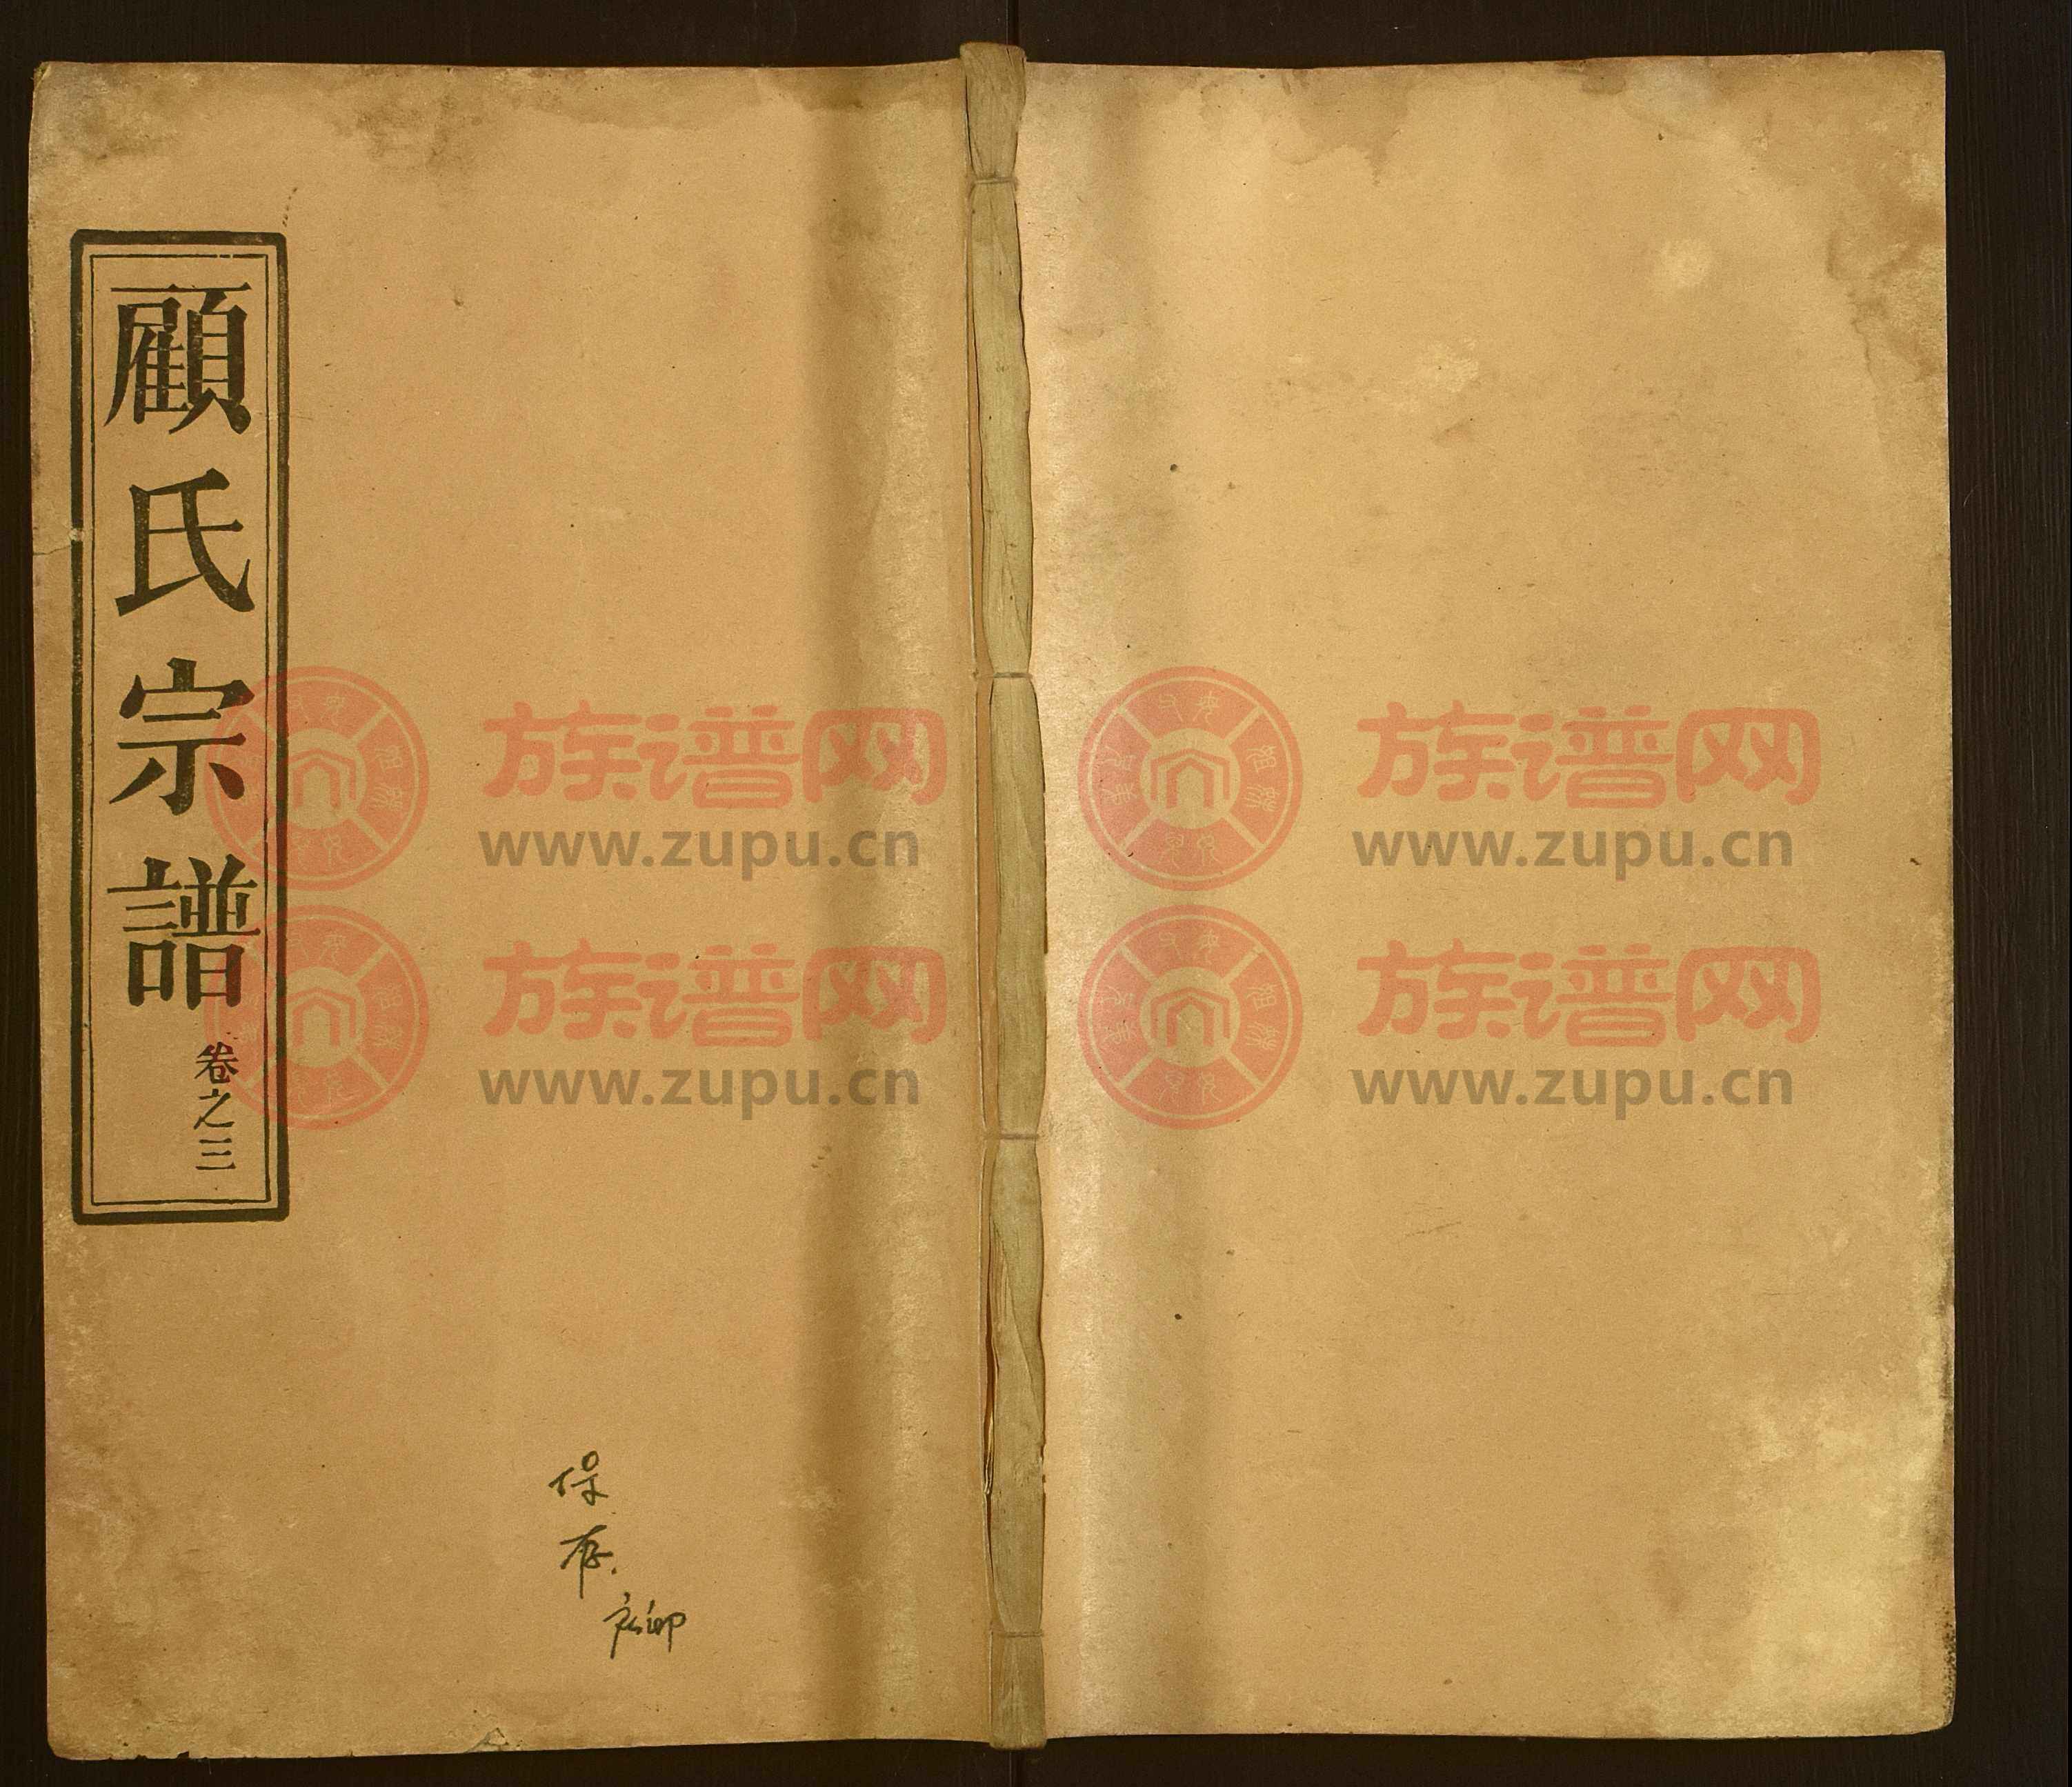 顧氏宗譜
卷之三
保存
族谱网
www.zupu.cn
族谱网
www.zupu.cn
族谱网
www.zupu.cn
族谱网
www.zupu.cn